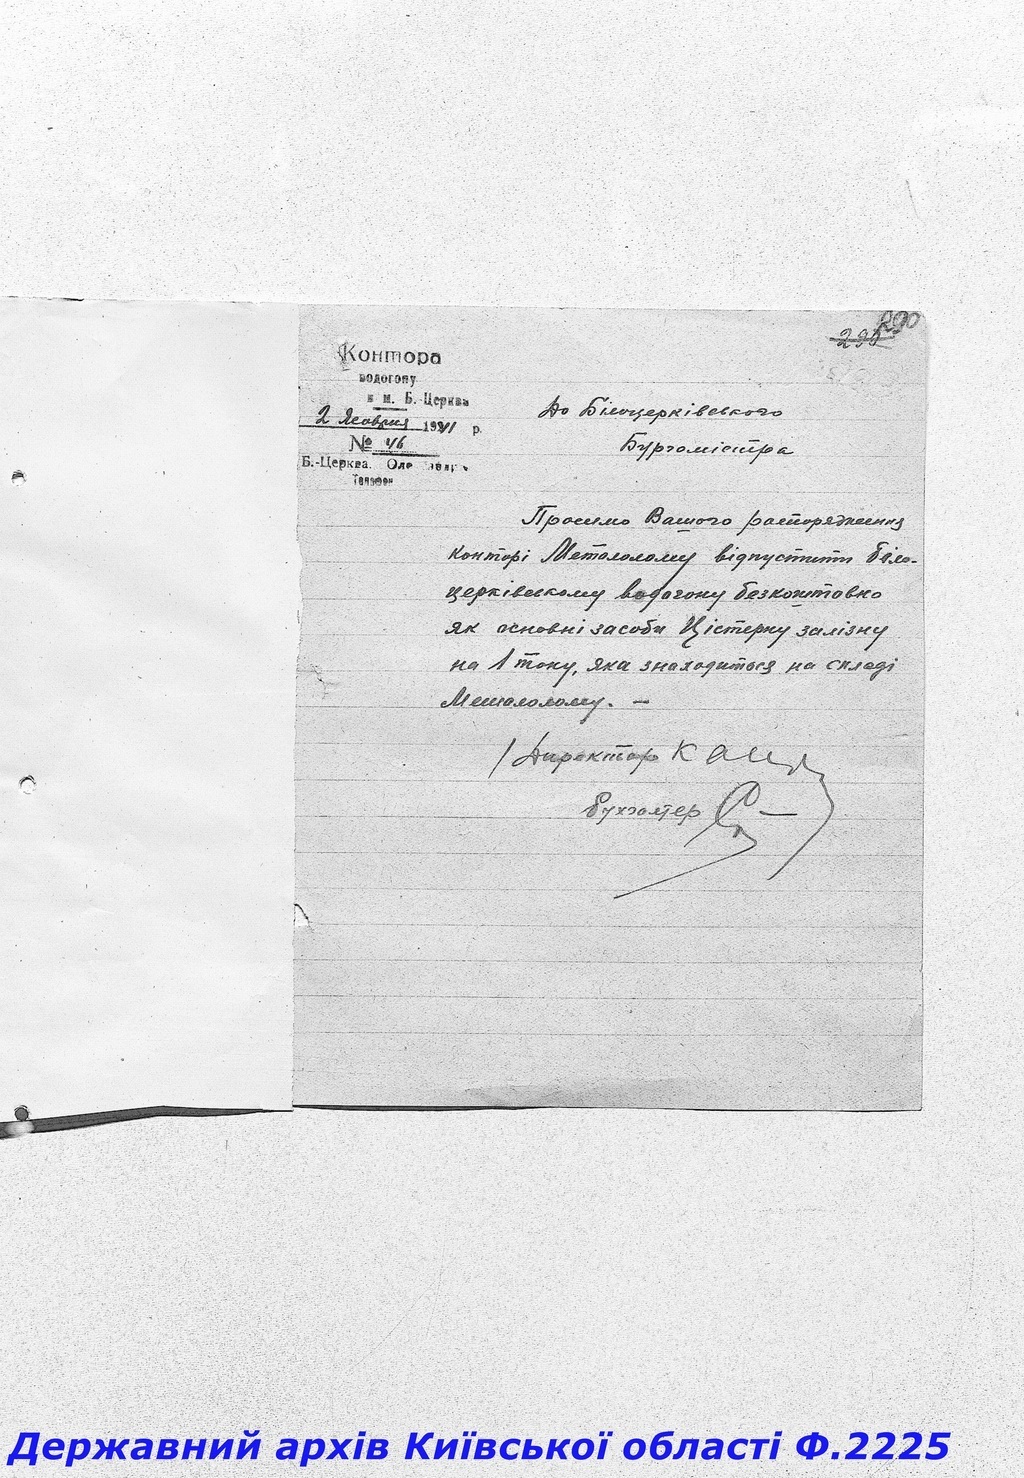 290
Контора
водогону
в м. Б.-Церква
2 Жовтня 1941 р.
№ 46
Б.-Церква.
Телефон
До Білоцерківського
Бургомістра
Просимо Вашого распорядження
конторі Металолому відпустити біло-
церківському водогону безкоштовно
як основні засоби Цістерну залізну
на 1 тону, яка знаходиться на складі
Металолому. —
Директор
Бухгалтер
Державний архів Київської області Ф.2225